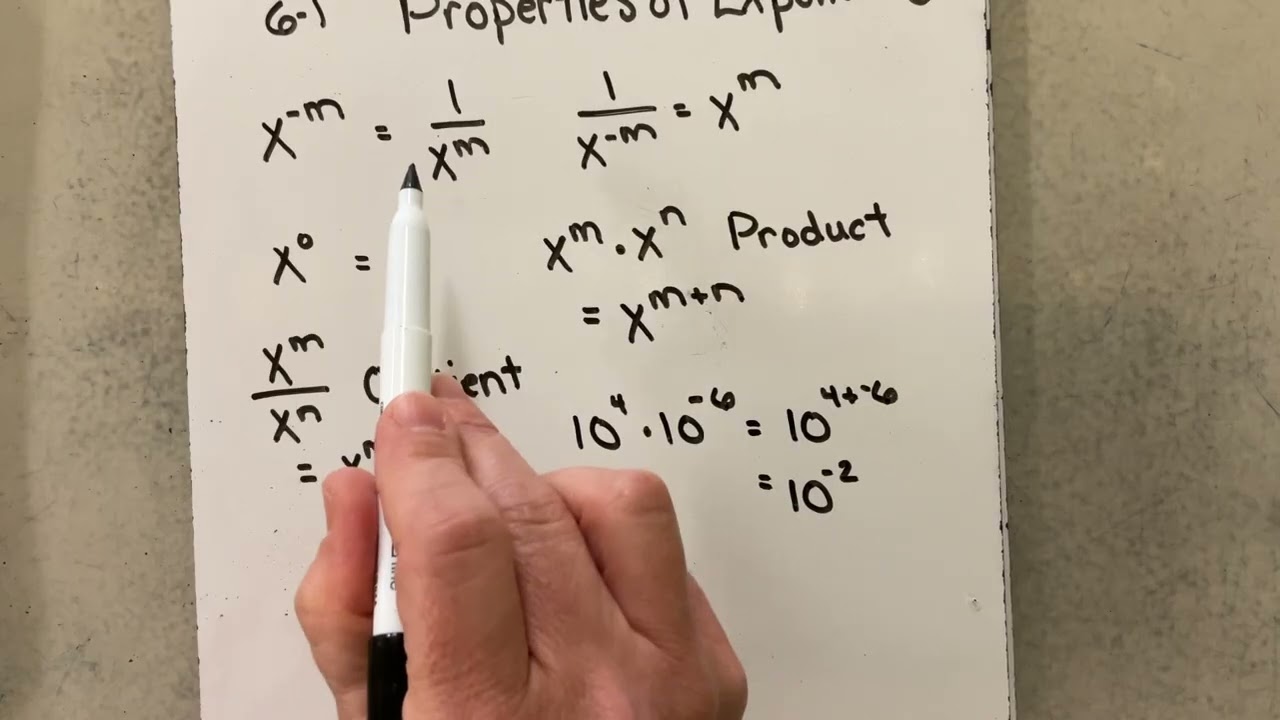 6-1 Properties of
x⁻ᵐ = 1/xᵐ
1/x⁻ᵐ = xᵐ
x⁰ =
xᵐ · xⁿ Product
= xᵐ⁺ⁿ
xᵐ/xⁿ
=
10⁴ · 10⁻⁶ = 10⁴⁺⁻⁶
= 10⁻²